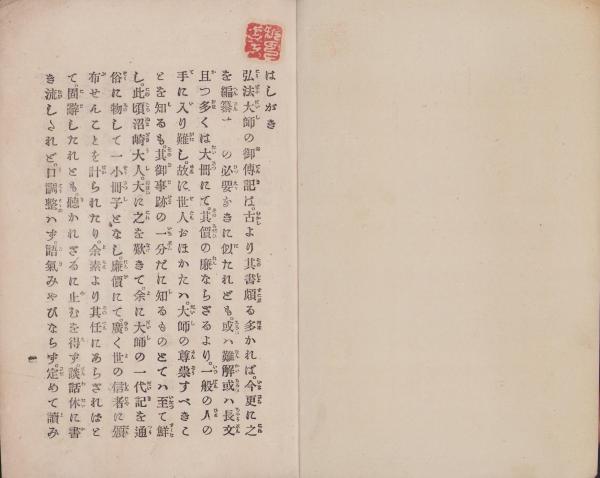 はしがき
弘法大師の御傳記は。古より其書頗る多かれば。今更に之
を編纂 の必要 きに似たれども。或ハ難解或ハ長文
且つ多くは大冊にて。其價の廉ならざるより。一般の人の
手に入り難し。故に世人おほかたハ。大師の尊崇すべきこ
とを知るも。其御事跡の一分だに知るものとてハ至て鮮
し。此頃沼崎大人。大に之を歎きて。余に大師の一代記を通
俗に物して一小冊子となし。廉價にて。廣く世の信者に頒
布せんことを計られたり。余素より其任にあらざればと
て。固辭したれとも。聽かれざるに止むを得ず。談話休に書
き流しゝれど。口調整ハず。語氣みやびならず。定めて讀み
一